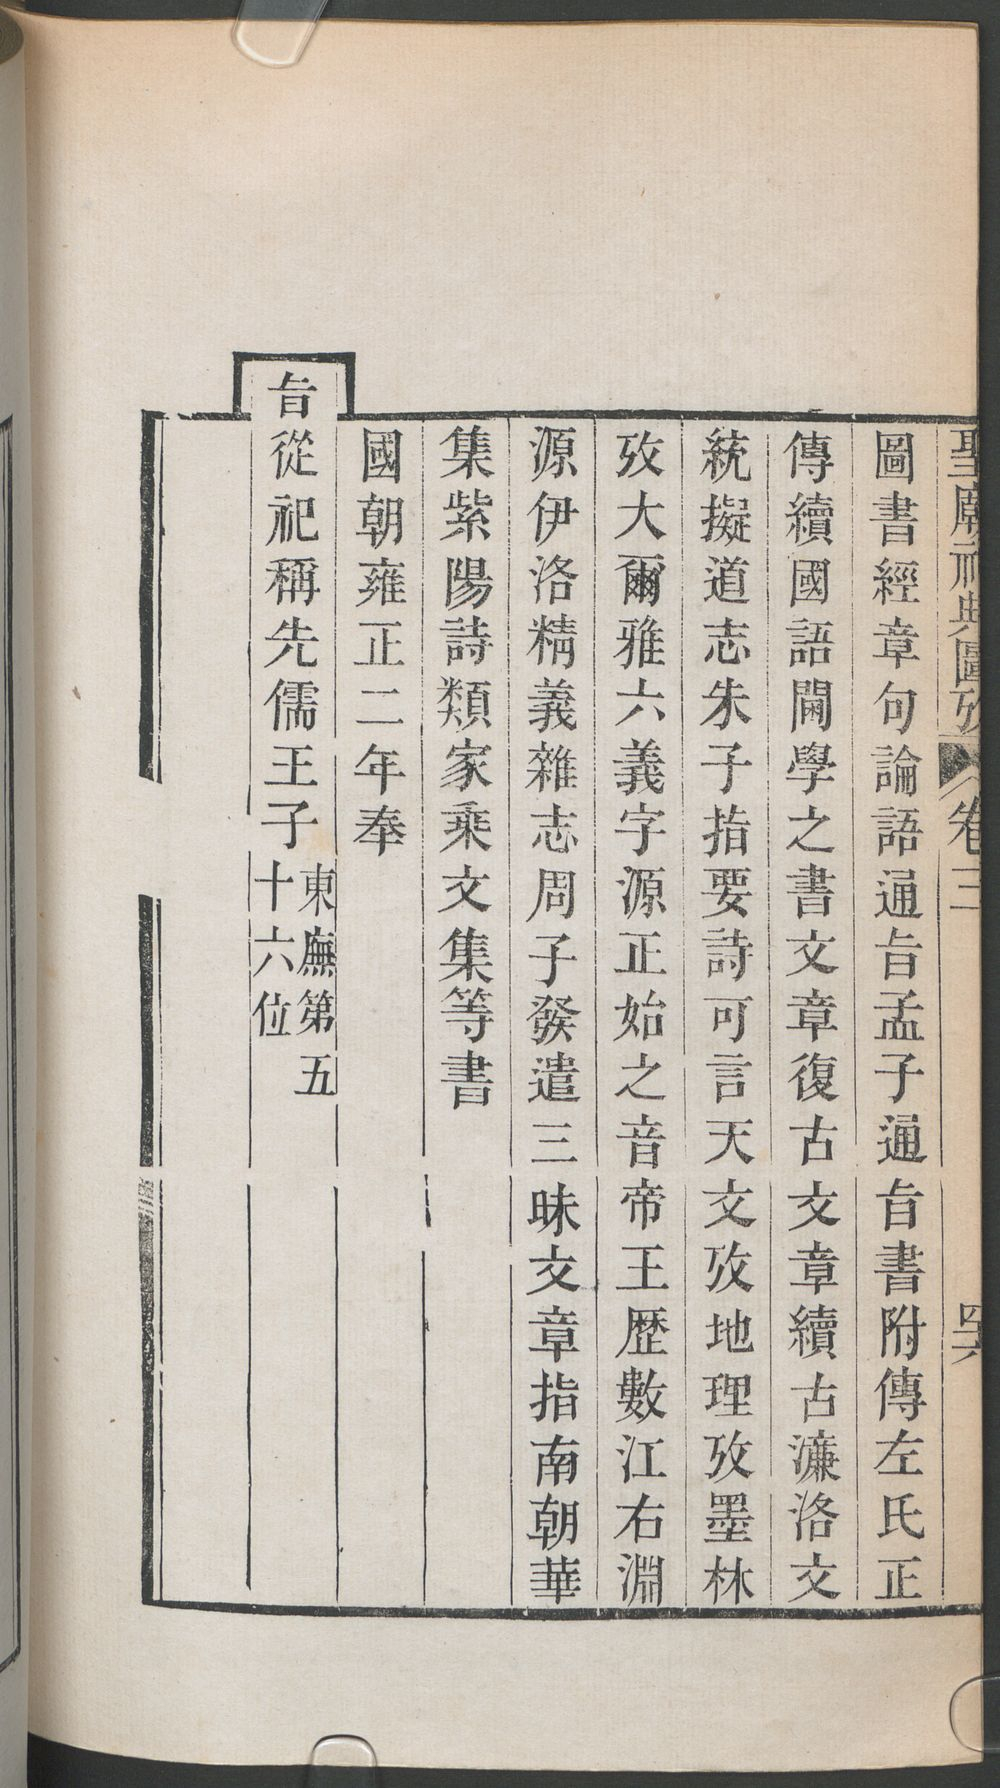 聖廟祀典圖攷 卷三 四六
圖書經章句論語通旨孟子通旨書附傳左氏正
傳續國語閫學之書文章復古文章續古濂洛文
統擬道志朱子指要詩可言天文攷地理攷墨林
攷大爾雅六義字源正始之音帝王歷數江右淵
源伊洛精義雜志周子發遣三昧文章指南朝華
集紫陽詩類家乘文集等書
國朝雍正二年奉
旨從祀稱先儒王子
東廡第五
十六位